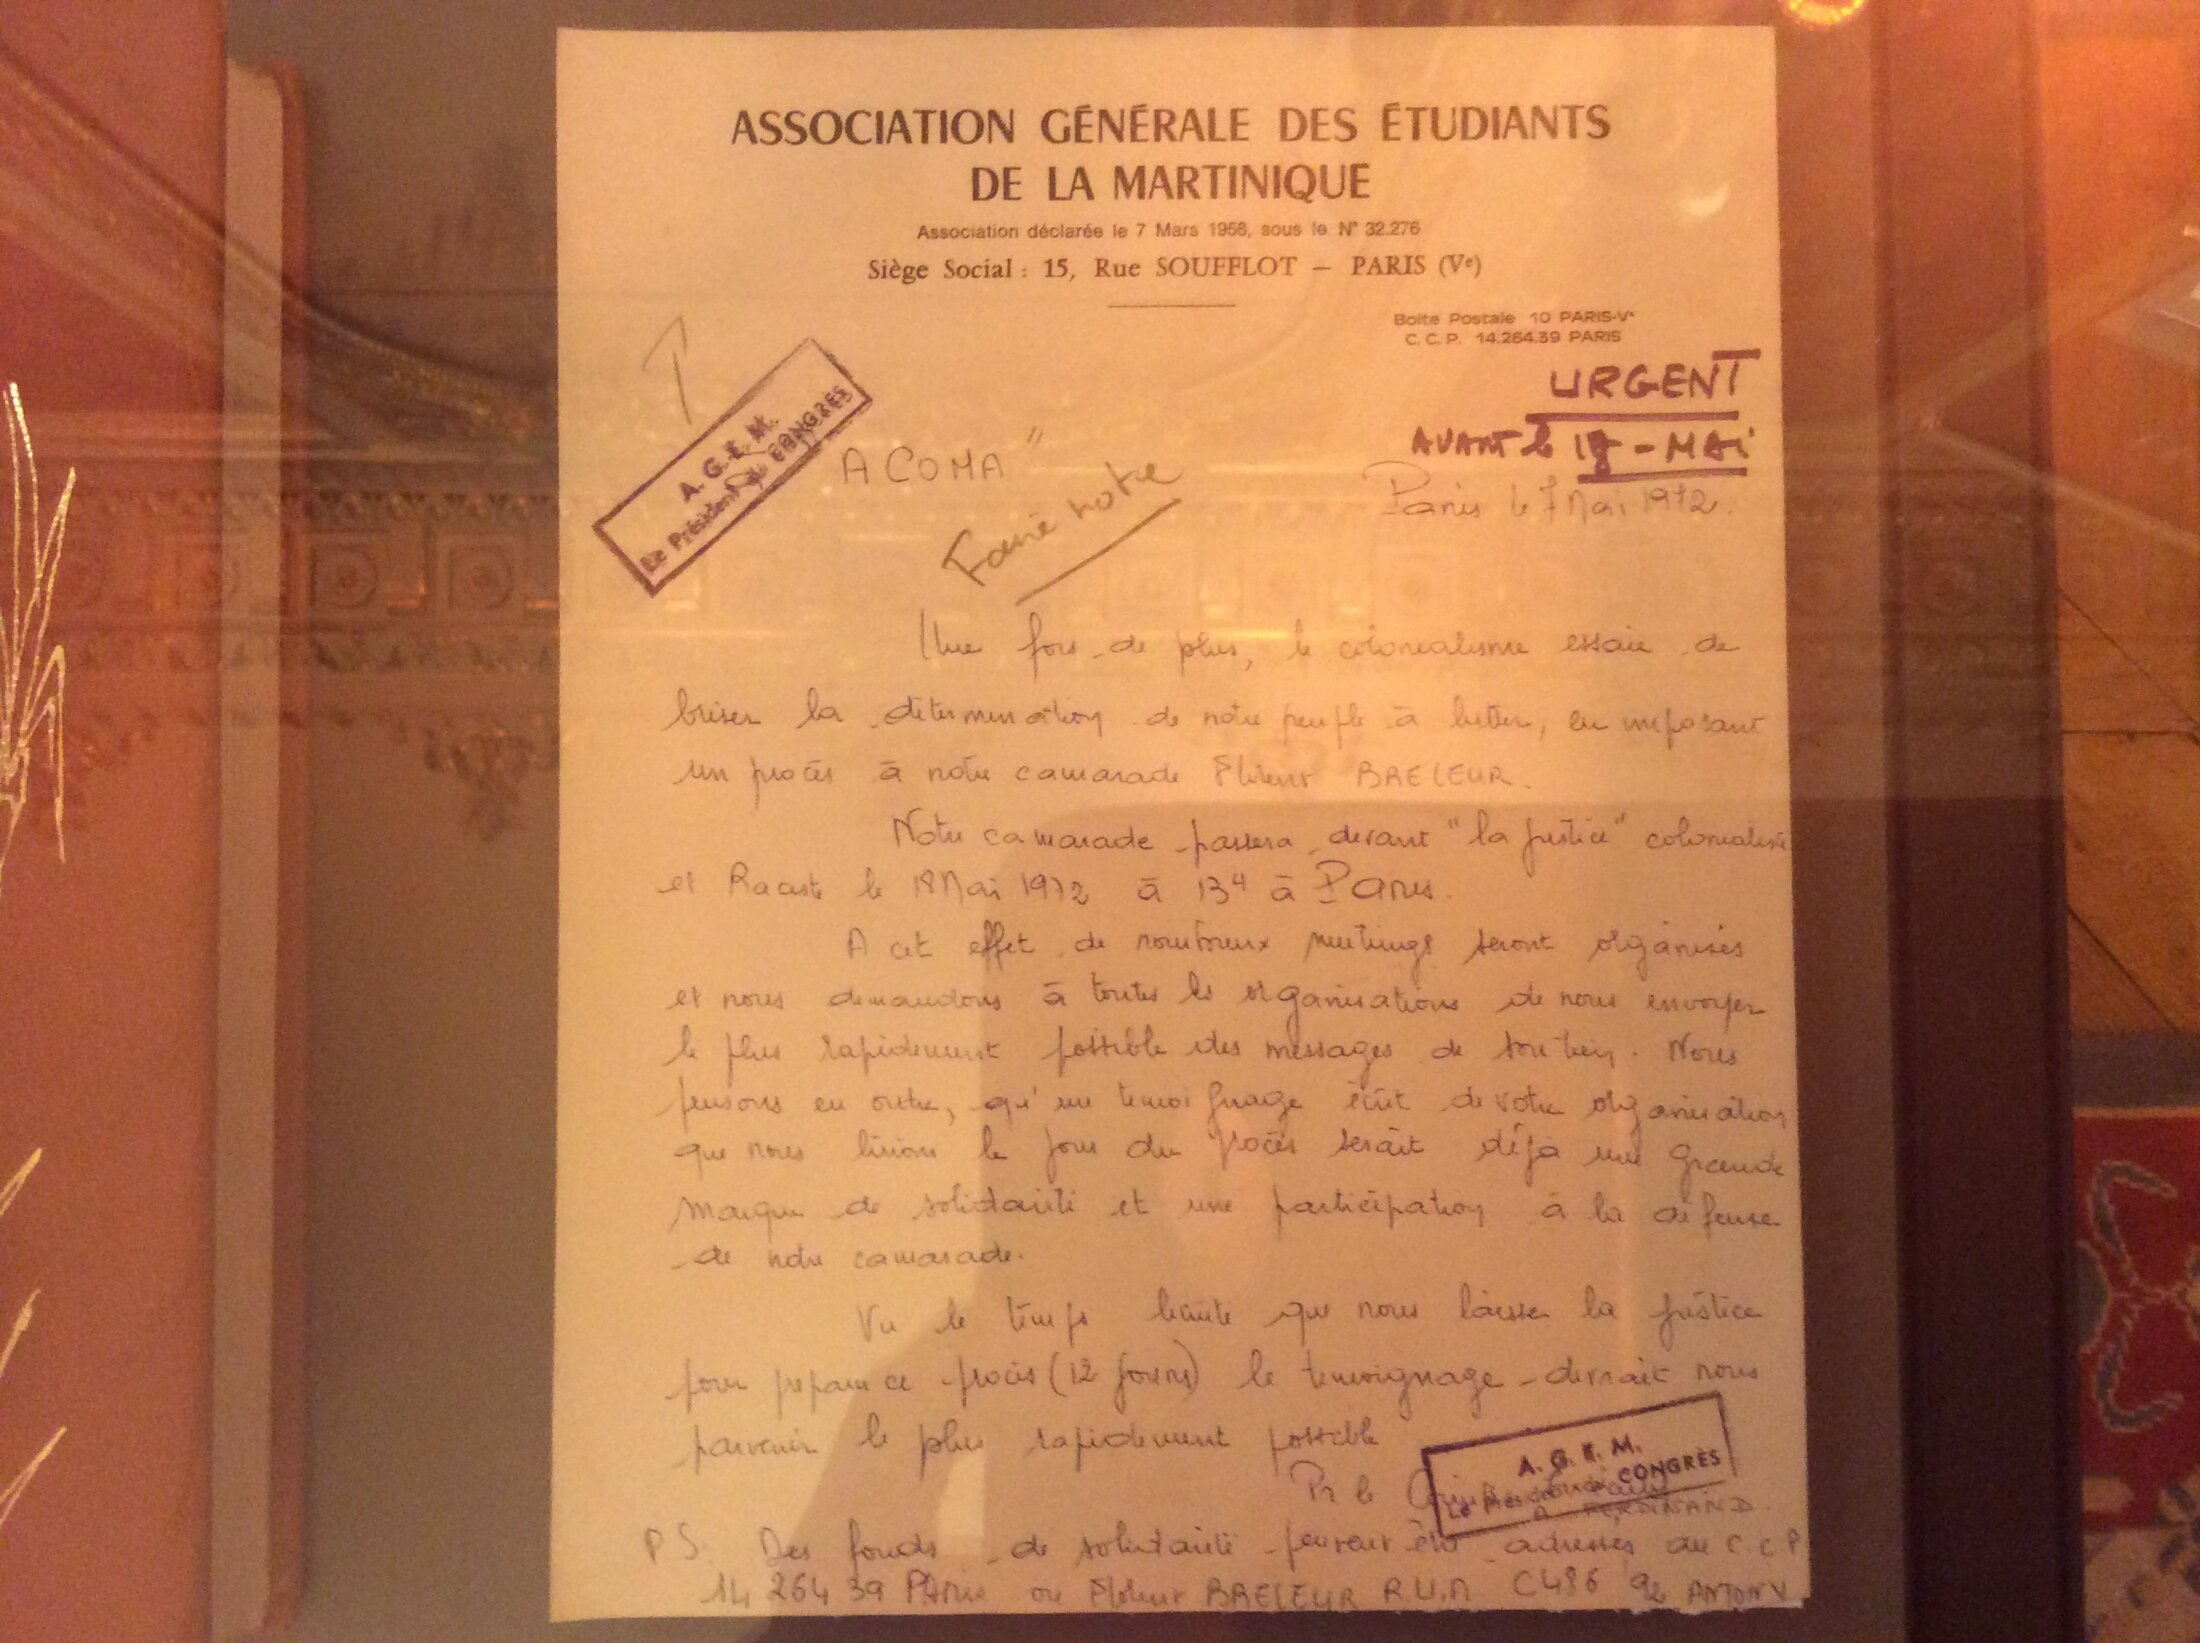 ASSOCIATION GÉNÉRALE DES ÉTUDIANTS
DE LA MARTINIQUE
Association déclarée le 7 Mars 1958, sous le N° 32.276
Siège Social : 15, Rue SOUFFLOT — PARIS (Ve)
Boite Postale 10 PARIS-Ve
C. C. P. 14.264.39 PARIS
URGENT
AVANT le 18 - MAI
Paris le 7 Mai 1972.
A. G. E. M.
Le Président du CONGRES
ACOMA"
Faire note
Une fois de plus, le colonialisme essaie de
briser la détermination de notre peuple à lutter, en imposant
un procès à notre camarade Florent BRELEUR.
Notre camarade passera devant "la justice" colonialiste
et Raciste le 18 Mai 1972 à 13H à Paris.
A cet effet de nombreux meetings seront organisés
et nous demandons à toutes les organisations de nous envoyer
le plus rapidement possible des messages de soutien. Nous
pensons en outre, qu'un temoignage écrit de votre organisation
que nous lirions le jour du procès serait déjà une grande
marque de solidarité et une participation à la defense
de notre camarade.
Vu le temps limite que nous laisse la justice
pour preparer ce procès (12 jours) le temoignage devrait nous
parvenir le plus rapidement possible
Pr le
A. G. E. M.
Le Président CONGRÈS
A FERDINAND.
P S. Des fonds de solidarité peuvent être adressés au C.C.P
14 264 39 PARIS ou Florent BRELEUR R.U.A C486 92 ANTONY